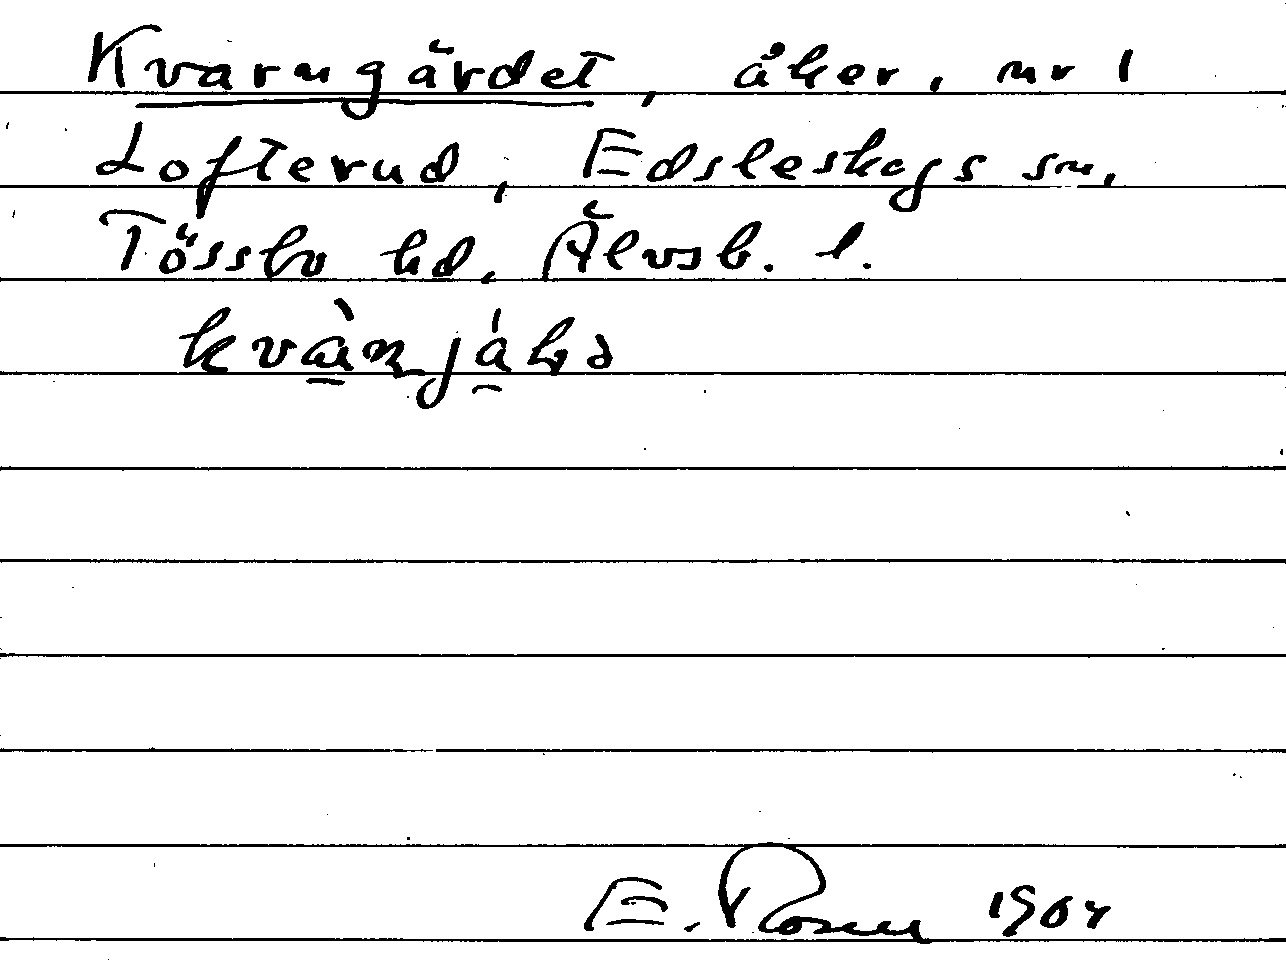 Kvarngärdet, åker, nr 1
Lofterud, Edsleskogs sn,
Tössbo hd, Älvsb. l.
E. Rosen 1904